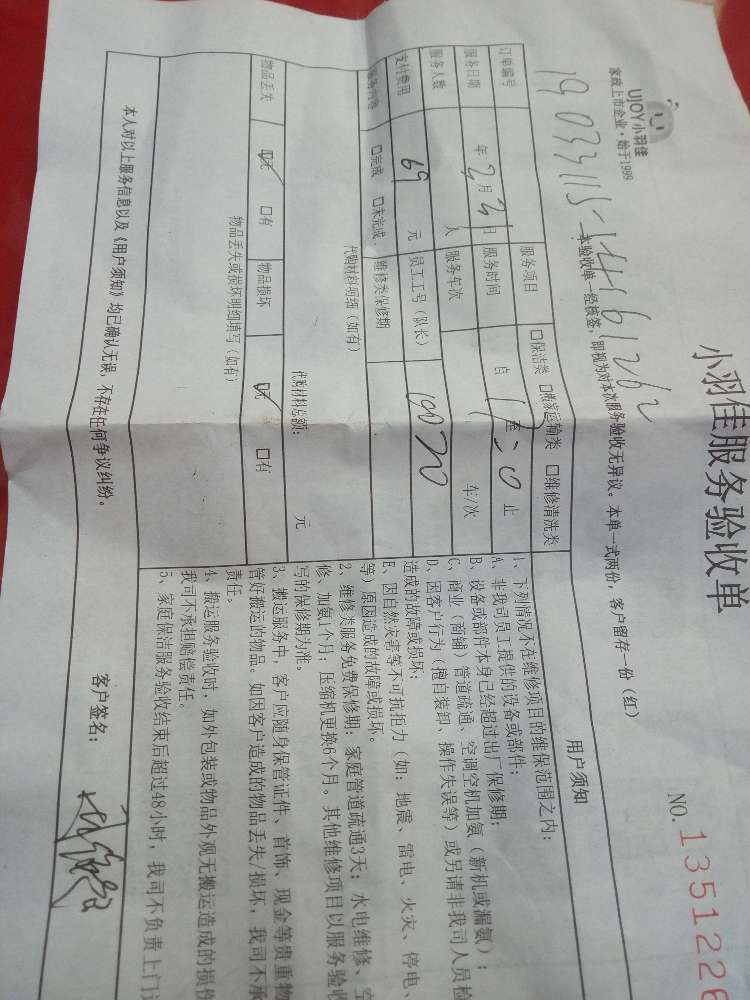 UJOY小羽佳
家政上市企业·始于1999
小羽佳服务验收单
NO. 1351226
本验收单一经核签，即视为对本次服务验收无异议。本单一式两份，客户留存一份（红）
订单编号
服务项目 □保洁类 □搬家运输类 □维修清洗类
服务日期 年 月 日 服务时间 自 至 止
服务人数 人 服务车次 车/次
支付费用 69 元 员工工号（队长） 19020
服务内容 □完成 □未完成 维修类保修期
代购材料明细（如有）
代购材料总额： 元
物品丢失 □无 □有 物品损坏 □无 □有
物品丢失或损坏明细填写（如有）
用户须知
1、下列情况不在维修项目的维保范围之内：
A、非我司员工提供的设备或部件；
B、设备或部件本身已经超过出厂保修期；
C、商业（商铺）管道疏通、空调空机加氨（新机或漏氨）；
D、因客户行为（擅自装卸、操作失误等）或另请非我司人员检
造成的故障或损坏；
E、因自然灾害等不可抗拒力（如：地震、雷电、火灾、停电、
等）原因造成的故障或损坏。
2、维修类服务免费保修期：家庭管道疏通3天；水电维修、空
修、加氨1个月；压缩机更换6个月。其他维修项目以服务验收
写的保修期为准。
3、搬运服务中，客户应随身保管证件、首饰、现金等贵重物
管好搬运的物品。如因客户造成的物品丢失/损坏，我司不承
责任。
4、搬运服务验收时，如外包装或物品外观无搬运造成的损伤
我司不承担赔偿责任。
5、家庭保洁服务验收结束后超过48小时，我司不负责上门
本人对以上服务信息以及《用户须知》均已确认无误，不存在任何争议纠纷。
客户签名：